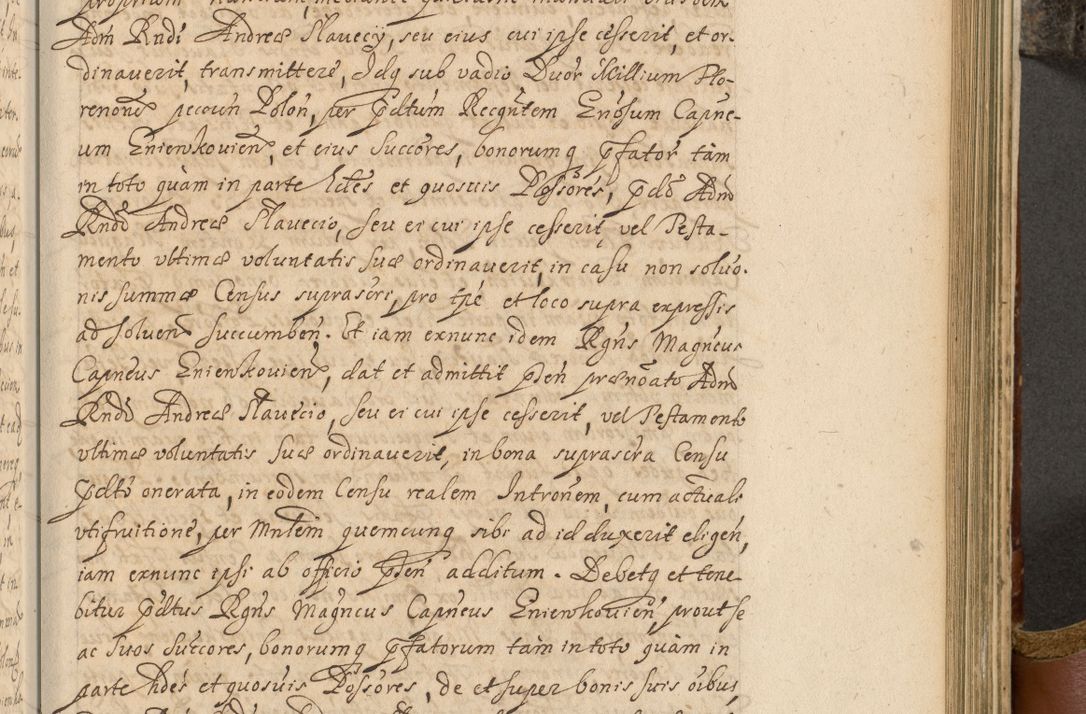 proprium
Adm Rndi Andreæ Slavecy, seu eius cui ipse cesserit, et or-
dinaverit, transmittere, Idq sub vadio Duor Millium Flo-
renorũ pecoũn Polon, per pdltum Recgntem Enosum Capne-
um Enienkovien, et eius Succores, bonorumq pfator tam
in toto quam in parte hdes et quosvis Possores, pdlo Adm
Rndo Andreæ Slavecio, seu ei cui ipse cesserit, vel Testa-
mento ultimæ voluntatis suæ ordinaverit, in casu non soluo-
nis summæ Census suprascri, pro tpe et loco supra expressis
ad solven succumben. Et iam exnunc idem Rgns Magncus
Capneus Enienkovien, dat et admittit psen prænoato Adm
Rndo Andreæ Slavecio, seu ei cui ipse cesserit, vel Testamento
ultimæ voluntatis suæ ordinaverit, in bona suprascra Censu
pdlto onerata, in eodem Censu realem Intronem, cum actuali
utifruitione, per Mnlem quemcunq sibi ad id duxerit eligen,
iam exnunc ipsi ab officio psen additum. Debetq et tene-
bitur pdltus Rgns Magncus Capneus Enienkovien, prout se
ac suos Succores, bonorumq pfatorum tam in toto quam in
parte hdes et quosvis Possores, de et super bonis suis oibus,